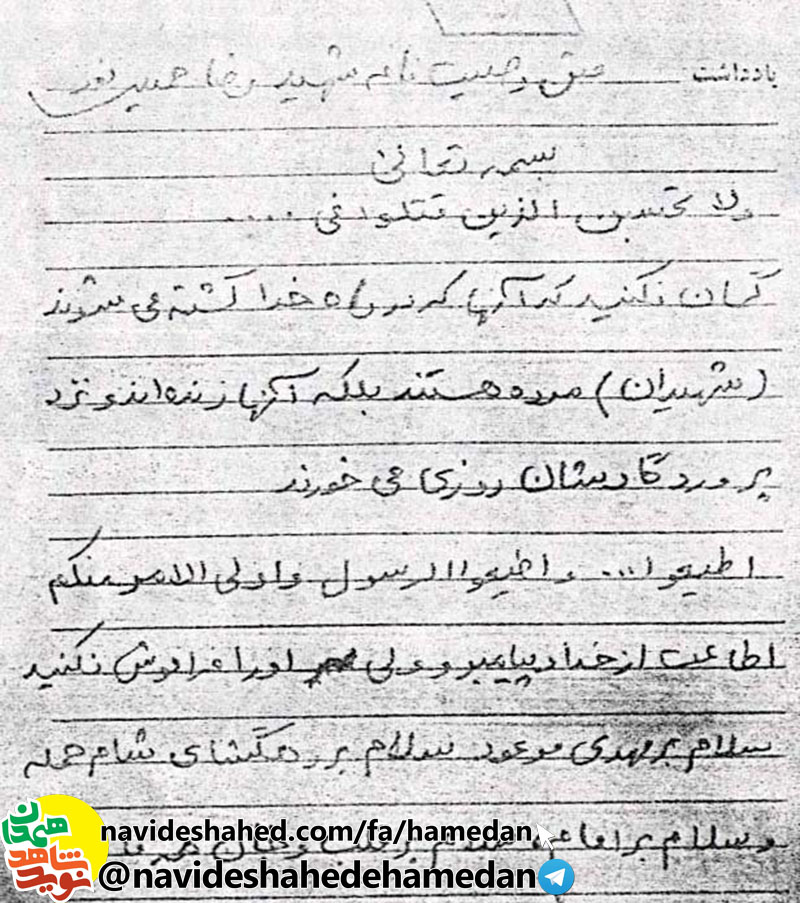 یادداشت متن وصیت نامه شهید رضا حسین پور
بسمه تعالی
ولا تحسبن الذین قتلوا فی ....
گمان نکنید که آنها که در راه خدا کشته می شوند
(شهیدان) مرده هستند بلکه آنها زنده اند و نزد
پروردگارشان روزی می خورند
اطیعوا... و اطیعوا الرسول و اولی الامر منکم
اطاعت از خدا و پیامبر و ولی را فراموش نکنید
سلام بر مهدی موعود سلام بر ره گشای شام همه
و سلام بر امام سلام بر قلب
navideshahed.com/fa/hamedan
@navideshahedehamedan
نوید شاهد همدان